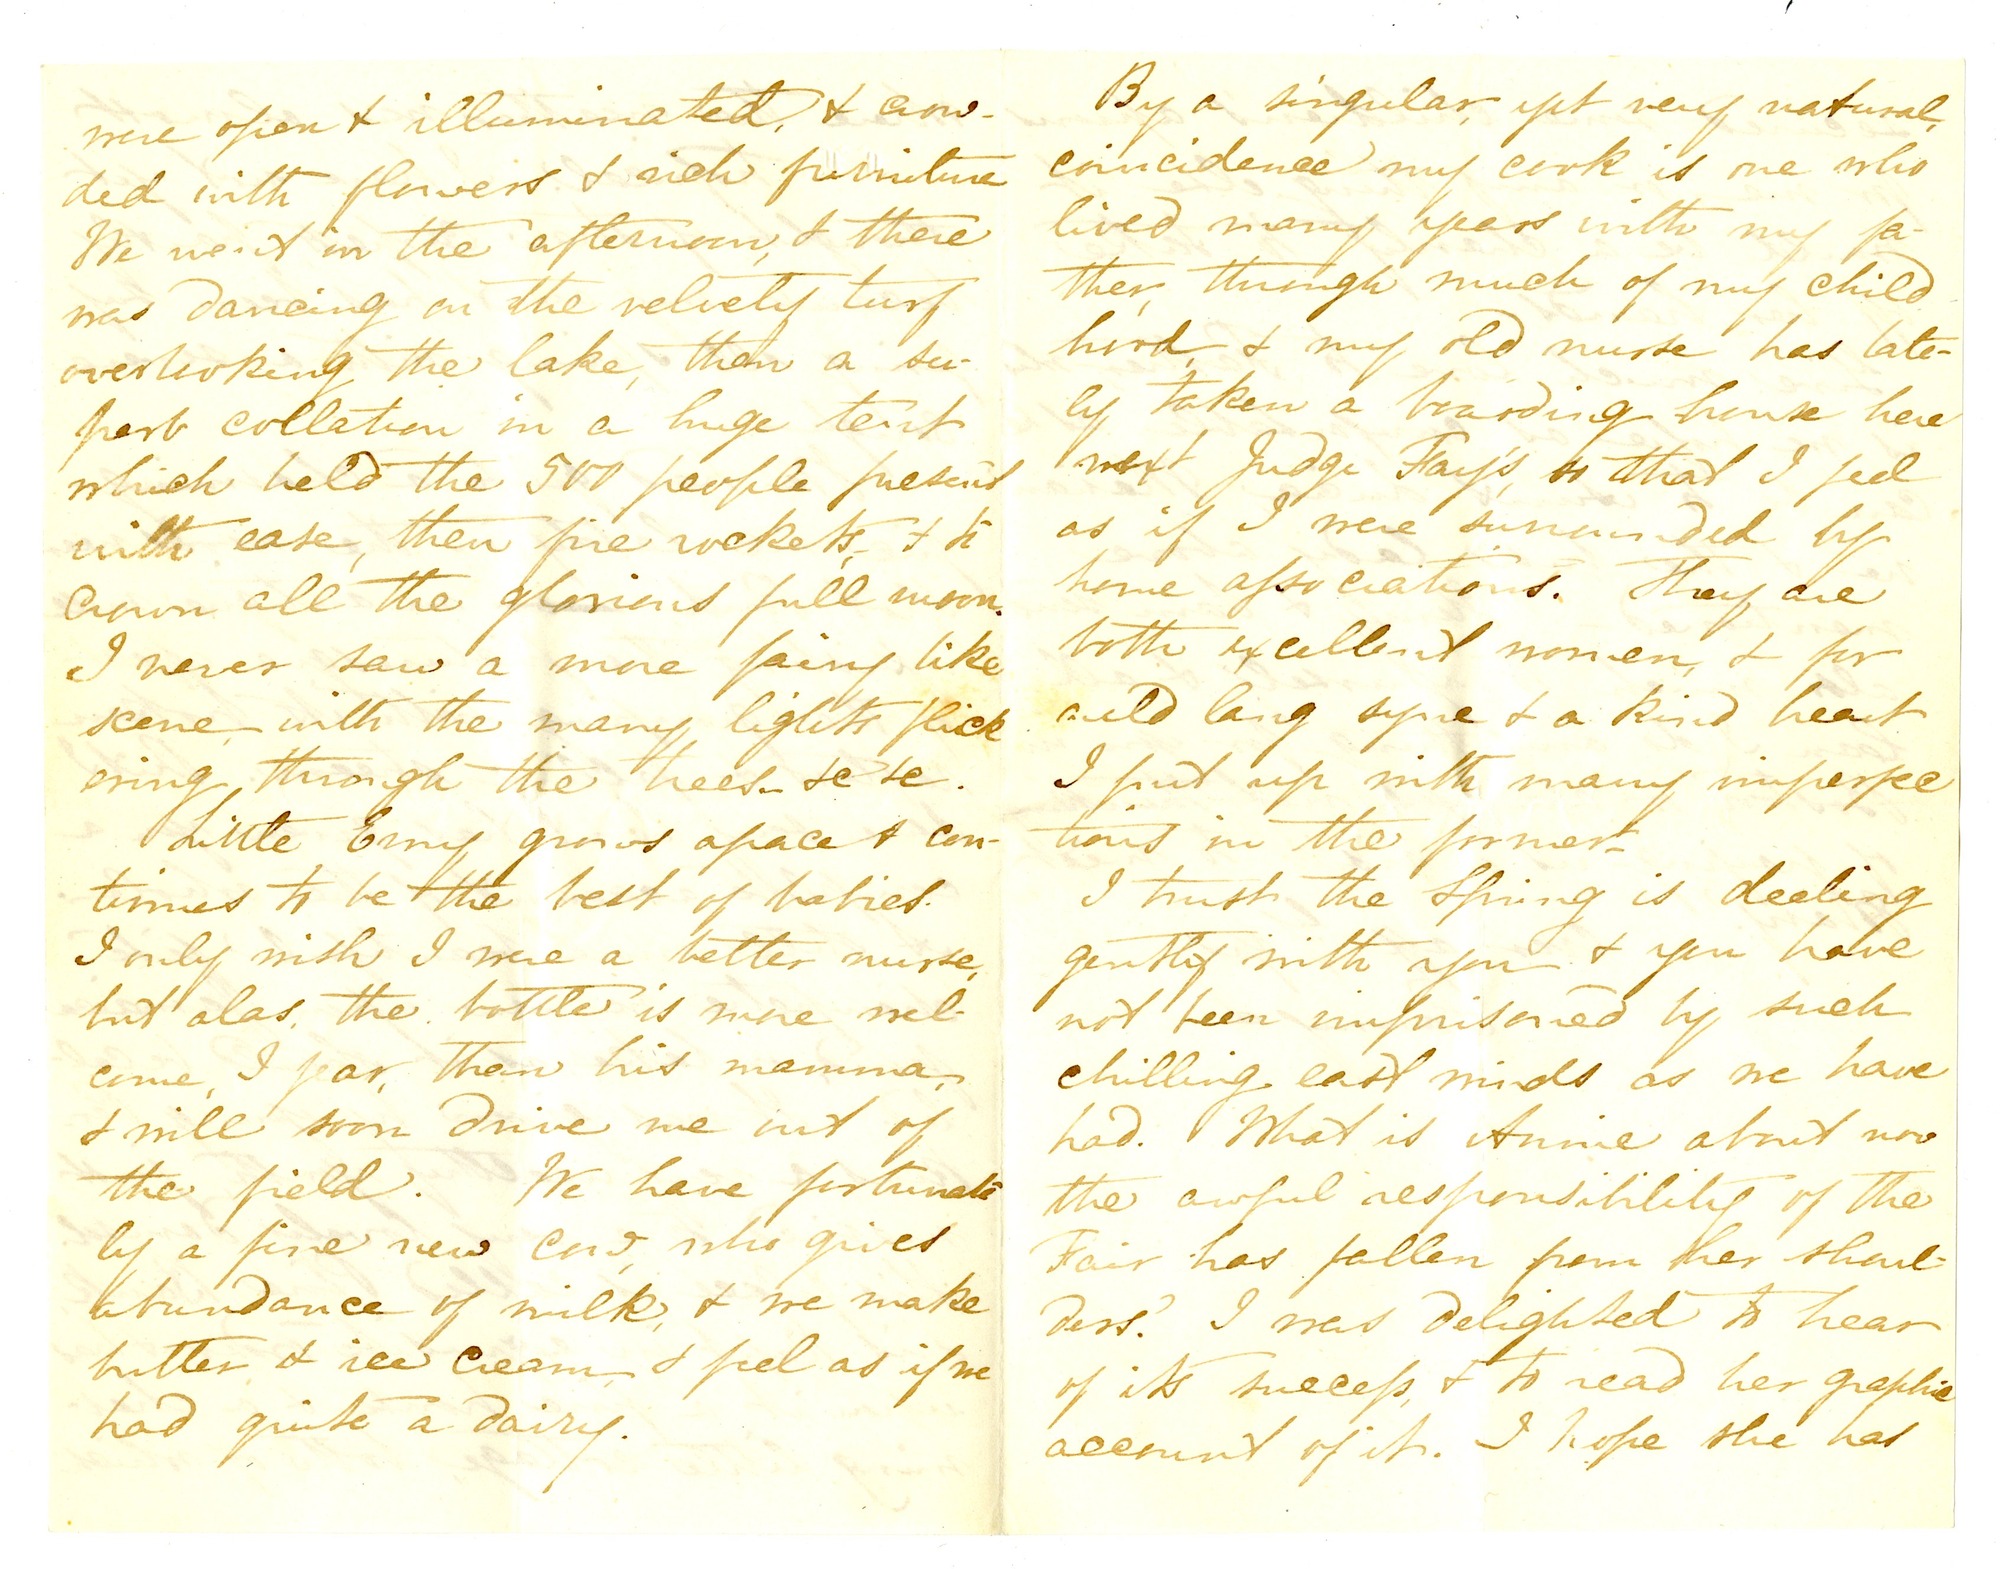 were open & illuminated, & crow-
ded with flowers & rich furniture
We went in the afternoon, & there
was dancing on the velvety turf
overlooking the lake, then a su-
perb collation in a huge tent
which held the 500 people present
with ease, then fire rockets, & to
crown all the glorious full moon.
I never saw a more fairy like
scene, with the many lights flick
ering through the trees- &c &c.
Little Emy grows apace & con-
tinues to be the best of babies.
I only wish I were a better nurse,
but alas, the bottle is more wel-
come, I fear, than his mamma,
& will soon drive me out of
the field. We have fortunate
ly a fine new cow, who gives
abundance of milk, & we make
butter & ice cream, & feel as if we
had quite a dairy.
By a singular, yet very natural,
coincidence my cook is one who
lived many years with my fa-
ther, through much of my child
hood, & my old nurse has late-
ly taken a boarding house here
next Judge Fay's, so that I feel
as if I were surrounded by
home associations. They are
both excellent women, & for
auld lang syne & a kind heart
I put up with many imperfec
tions in the former.
I trust the Spring is deeling
gently with you & you have
not been imprisoned by such
chilling east winds as we have
had. What is Annie about now
the awful responsibility of the
Fair has fallen from her shoul-
ders? I was delighted to hear
of its success, & to read her graphic
account of it. I hope she has